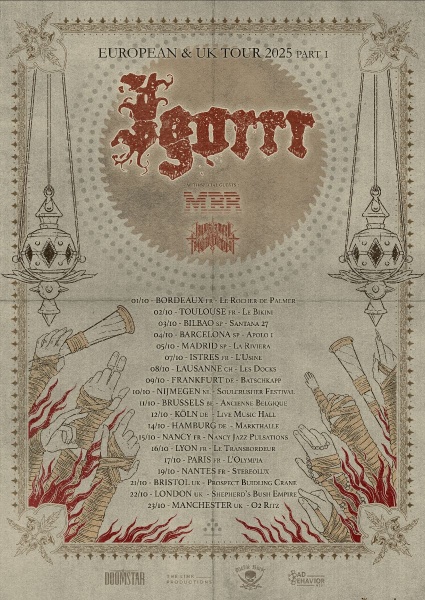 EUROPEAN & UK TOUR 2025 PART 1
Igorrr
MRR
01/10 - BORDEAUX FR - LE ROCHER DE PALMER
02/10 - TOULOUSE FR - LE BIKINI
03/10 - BILBAO SP - SANTANA 27
04/10 - BARCELONA SP - APOLO 1
05/10 - MADRID SP - LA RIVIERA
07/10 - ISTRES FR - L'USINE
08/10 - LAUSANNE CH - LES DOCKS
09/10 - FRANKFURT DE - BATSCHKAPP
10/10 - NIJMEGEN NL - SOULCRUSHER FESTIVAL
11/10 - BRUSSELS BE - ANCIENNE BELGIQUE
12/10 - KÖLN DE - LIVE MUSIC HALL
14/10 - HAMBURG DE - MARKTHALLE
15/10 - NANCY FR - NANCY JAZZ PULSATIONS
16/10 - LYON FR - LE TRANSBORDEUR
17/10 - PARIS FR - L'OLYMPIA
19/10 - NANTES FR - STEREOLUX
21/10 - BRISTOL UK - PROSPECT BUIDLING CRANE
22/10 - LONDON UK - SHEPHERD'S BUSH EMPIRE
23/10 - MANCHESTER UK - O2 RITZ
DOOMSTAR
PRODUCTIONS
BAD BEHAVIOR